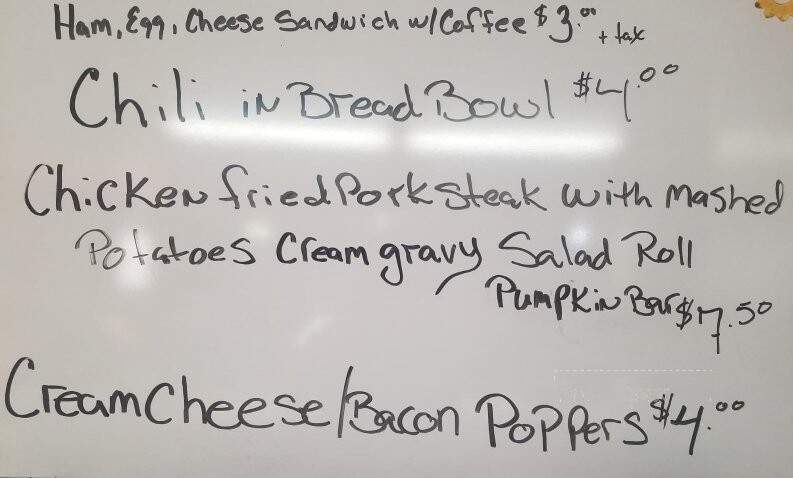 Ham, Egg, Cheese Sandwich w/Coffee $3.00 + tax
Chili in Bread Bowl $4.00
Chicken fried Pork Steak with mashed
Potatoes Cream gravy Salad Roll
Pumpkin Bar $7.50
Cream Cheese/Bacon Poppers $4.00